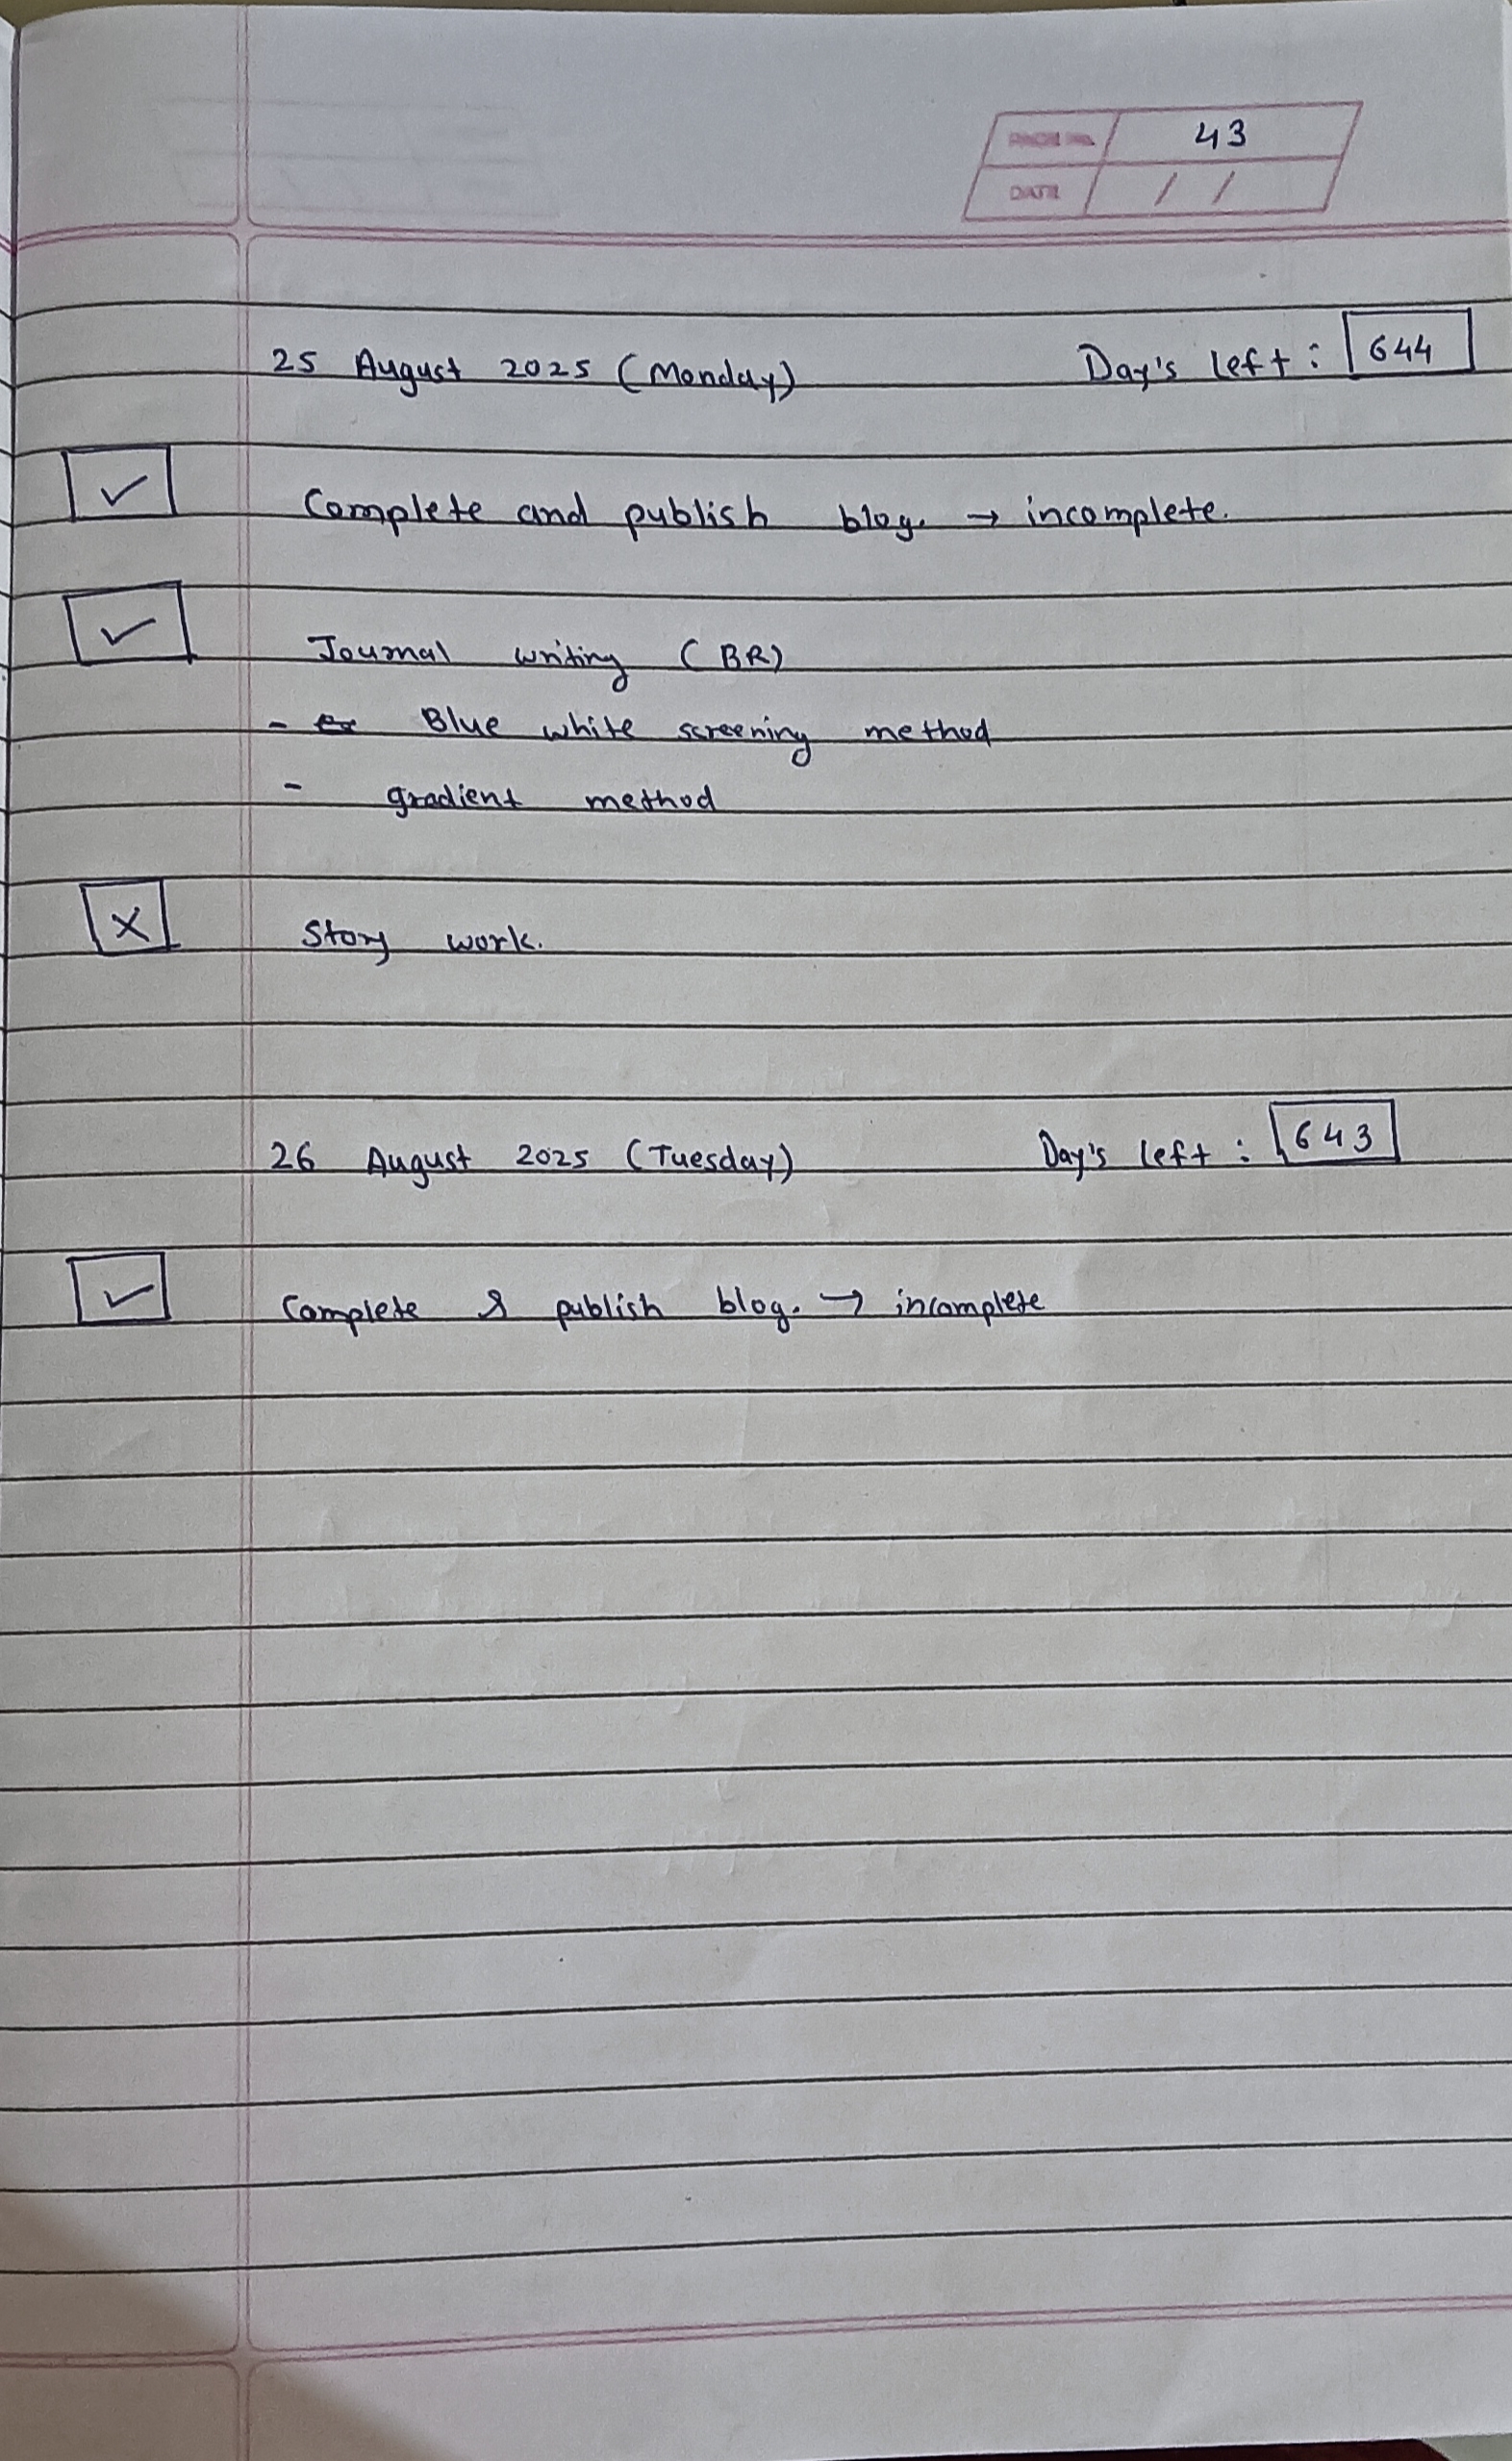 PAGE No. 43
DATE / /
25 August 2025 (Monday) Day's left : 644
✓ Complete and publish blog. → incomplete.
✓ Journal writing (BR)
- Blue white screening method
- gradient method
X Story work.
26 August 2025 (Tuesday) Day's left : 643
✓ Complete & publish blog. → incomplete